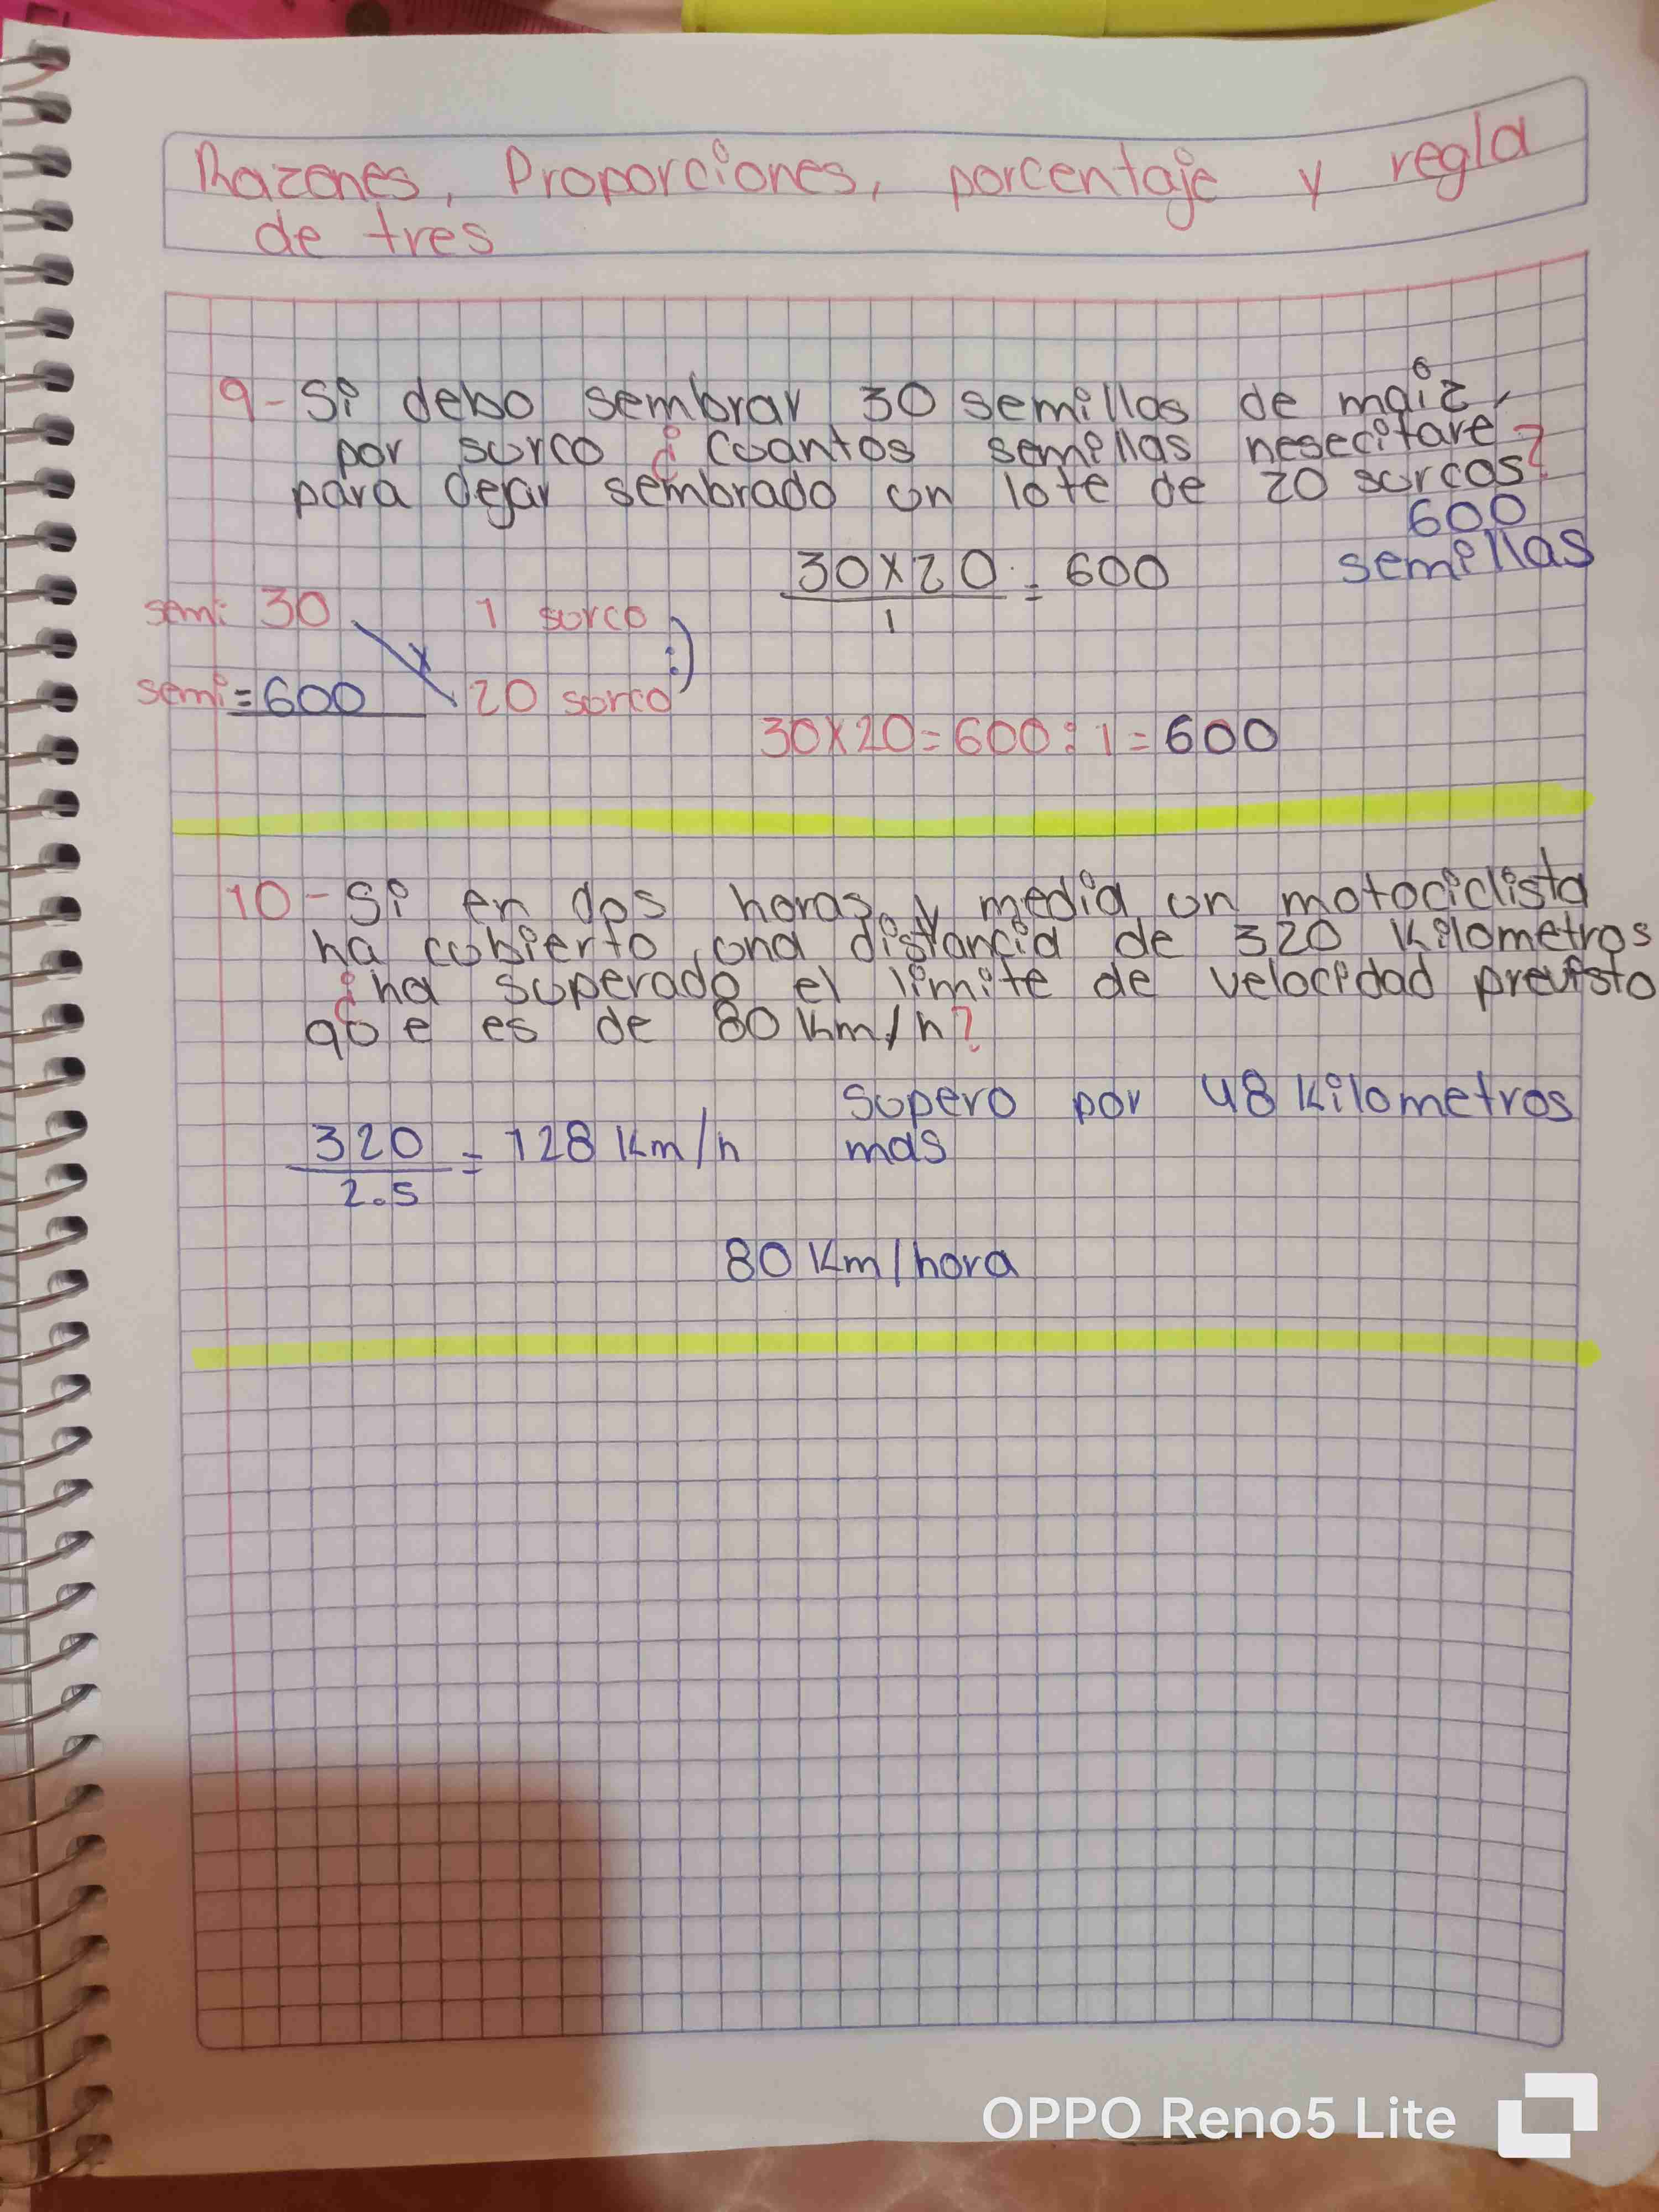 Razones, Proporciones, porcentaje y regla
de tres
9- Si debo sembrar 30 semillas de maiz
por surco ¿Cuantos semillas nesecitare
para dejar sembrado un lote de 20 surcos?
600
semillas
30x20 = 600
1
semi 30 1 surco
x :)
semi=600 20 surco
30x20=600:1=600
10-Si en dos horas y media un motociclista
ha cubierto una distancia de 320 Kilometros
¿ha superado el limite de velocidad previsto
que es de 80 Km/h?
320 = 128 Km/h
2.5
Supero por 48 Kilometros
mas
80 Km/hora
OPPO Reno5 Lite